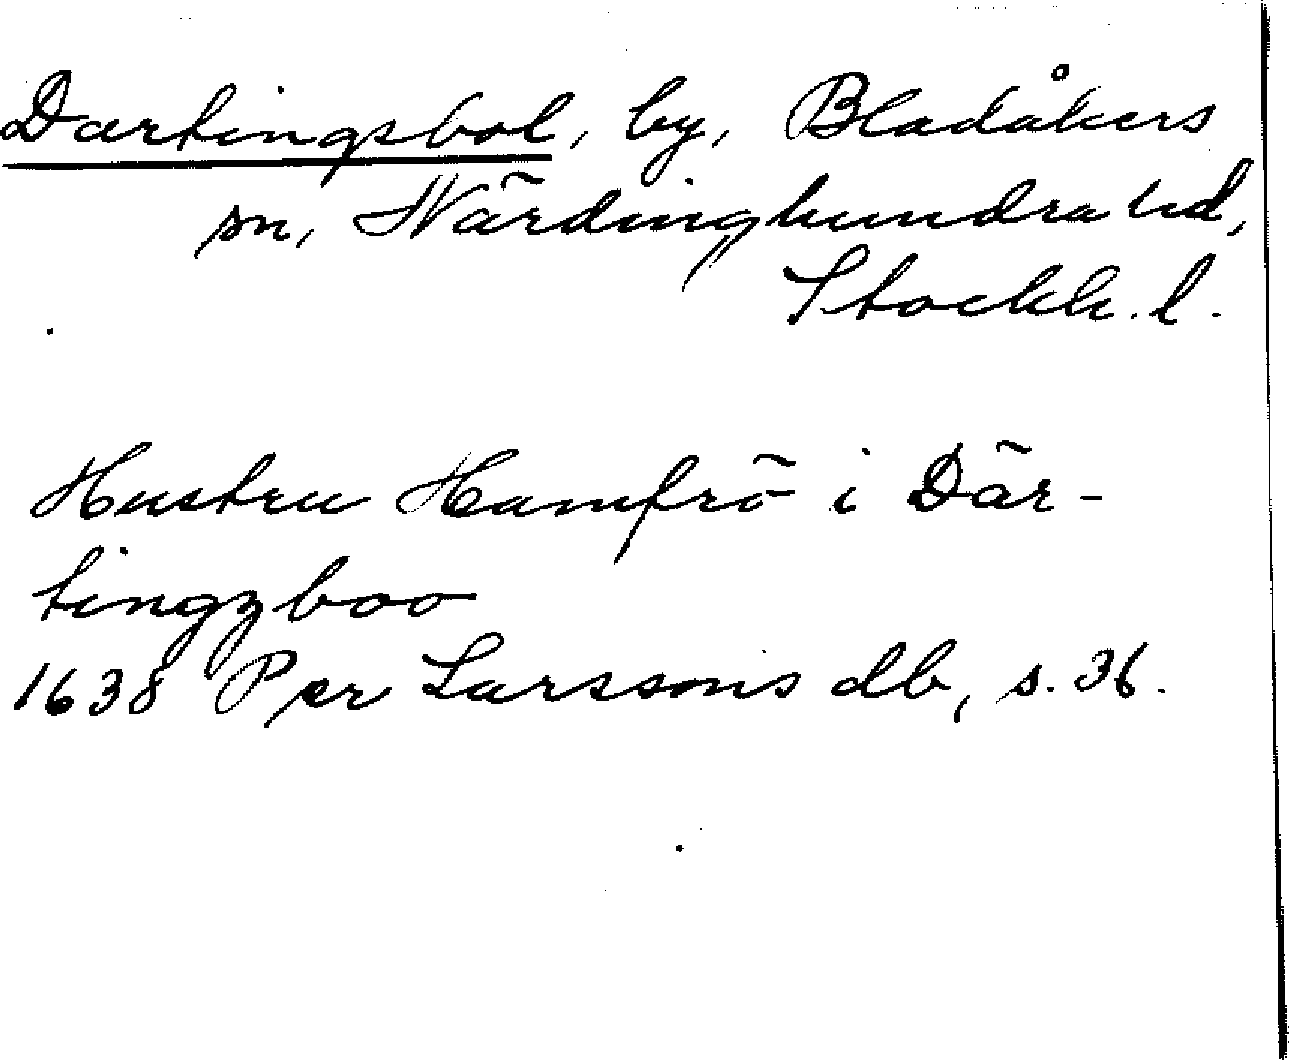 Dartingsbol, by, Bladåkers
sn, Närdinghundra hd,
Stockh. l.
Hustru Hamfrö i Där-
tingzboo
1638 Per Larssons db, s. 36.